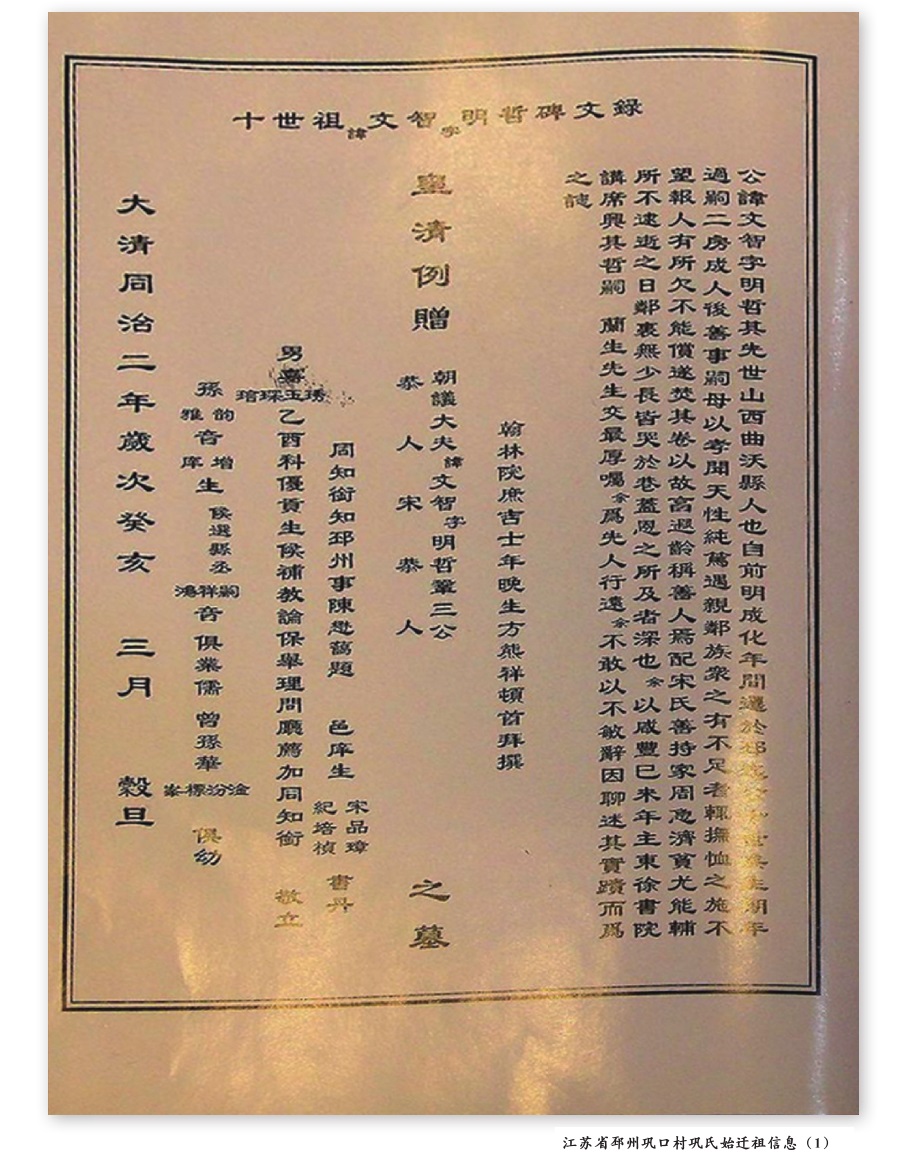 十世祖諱文智字明哲碑文錄
公諱文智字明哲其先世山西曲沃縣人也自前明成化年間遷於邳
過嗣二房成人後善事嗣母以孝聞天性純篤遇親鄰族衆之有不足者輒撫恤之施不
望報人有所欠不能償遂焚其卷以故高遐齡稱善人焉配宋氏善持家周急濟貧尤能輔
所不逮逝之日鄰裏無少長皆哭於巷蓋恩之所及者深也余以咸豐巳未年主東徐書院
講席與其哲嗣 蘭生先生交最厚囑余爲先人行遠余不敢以不敏辭因聊述其實蹟而爲
之誌
翰林院庶吉士年晚生方熊祥頓首拜撰
皇清例贈
朝議大夫諱文智字明哲鞏三公
恭人宋恭人
之墓
同知銜知邳州事陳懋藹題 邑庠生 宋品璋 紀培楨 書丹
男嘉琇玉琛琯乙酉科優貢生候補教諭保舉理問廳薦加同知銜 敬立
孫韵雅音增庠生候選縣丞嗣祥鴻音俱業儒曾孫華淦汾標峯俱幼
大清同治二年歲次癸亥 三月 穀旦
江苏省邳州巩口村巩氏始迁祖信息（1）